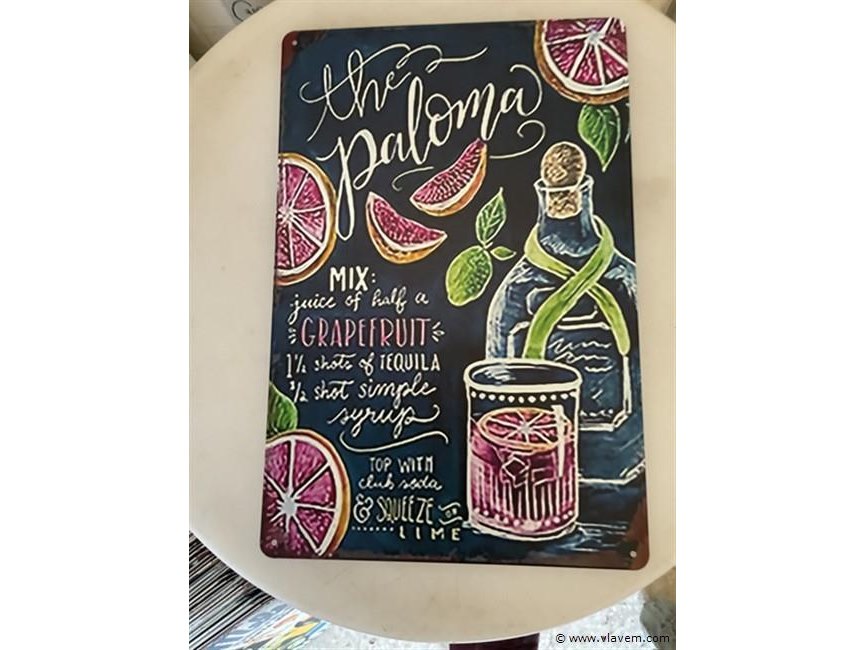 the
paloma
MIX:
juice of half a
GRAPEFRUIT
1½ shots of TEQUILA
½ shot simple
syrup
TOP WITH
club soda
& SQUEEZE OF
LIME
© www.vlavem.com